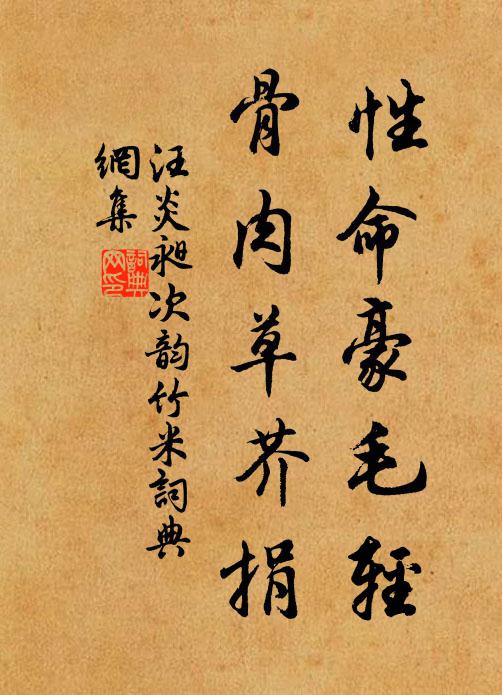 性命豪毛輕
骨肉草芥捐
汪炎昶次韵竹米詞典
網集
詞典
网印